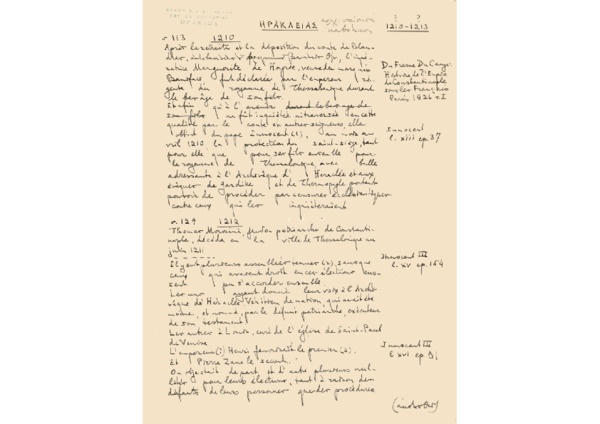 ΗΡΑΚΛΕΙΑΣ
1210-1213
σ. 113 1210
Après la retraite et la déposition du comte de
l'impé-
ratrice Marguerite de Hongrie, veuve du marquis
Boniface, fut déclarée par l'empereur ré-
gente du royaume de Thessalonique durant
le bas âge de son fils.
Et afin qu'à l'avenir durant le bas age de
son fils ne fut inquiétée ni traversée en cette
qualité par le comte ou autres seigneurs, elle
obtint du pape Innocent (1), au mois
avril 1210 la protection du Saint-siège, tant
pour elle que pour son fils
le royaume de Thessalonique, avec bulle
adressante à l'Archevêque d'Héraclée et aux
évêques de Gardike et de Thermopyle portant
pouvoir de procéder par censures ecclésiastiques
contre ceux qui les inquièteraient
Du Fresne Du Cange
Histoire de l'Empire
de Constantinople
sous les Français
Paris 1826 τ. I
Innocent
l. xiii ep. 37
σ. 129 1212
Thomas Morosini, patriarche de Constanti-
nople, décéda en la ville de Thessalonique au
juin 1211
Il y eut plusieurs assemblées tenues (2), sans que
ceux qui avaient droit en ces élections eus-
sent pu s'accorder ensemble
Les uns ayant donné leurs voix à l'Arche-
vêque d'Héraclée Vénitien de nation, qui avait été
même, et nommé, par le défunt patriarche, exécuteur
de son testament
Les autres à Louis, curé de l'église de Saint-Paul
de Venise
L'empereur Henri favorisait le premier
Et Pierre Zane le second.
On objectait de part, et d'autre plusieurs nul-
lités pour leurs élections, tant à raison des
défauts de leurs personnes que des procédures
Innocent III
l. xv ep. 154
Innocent III
l. xvi ep. 91
(ἀκολουθεῖ)